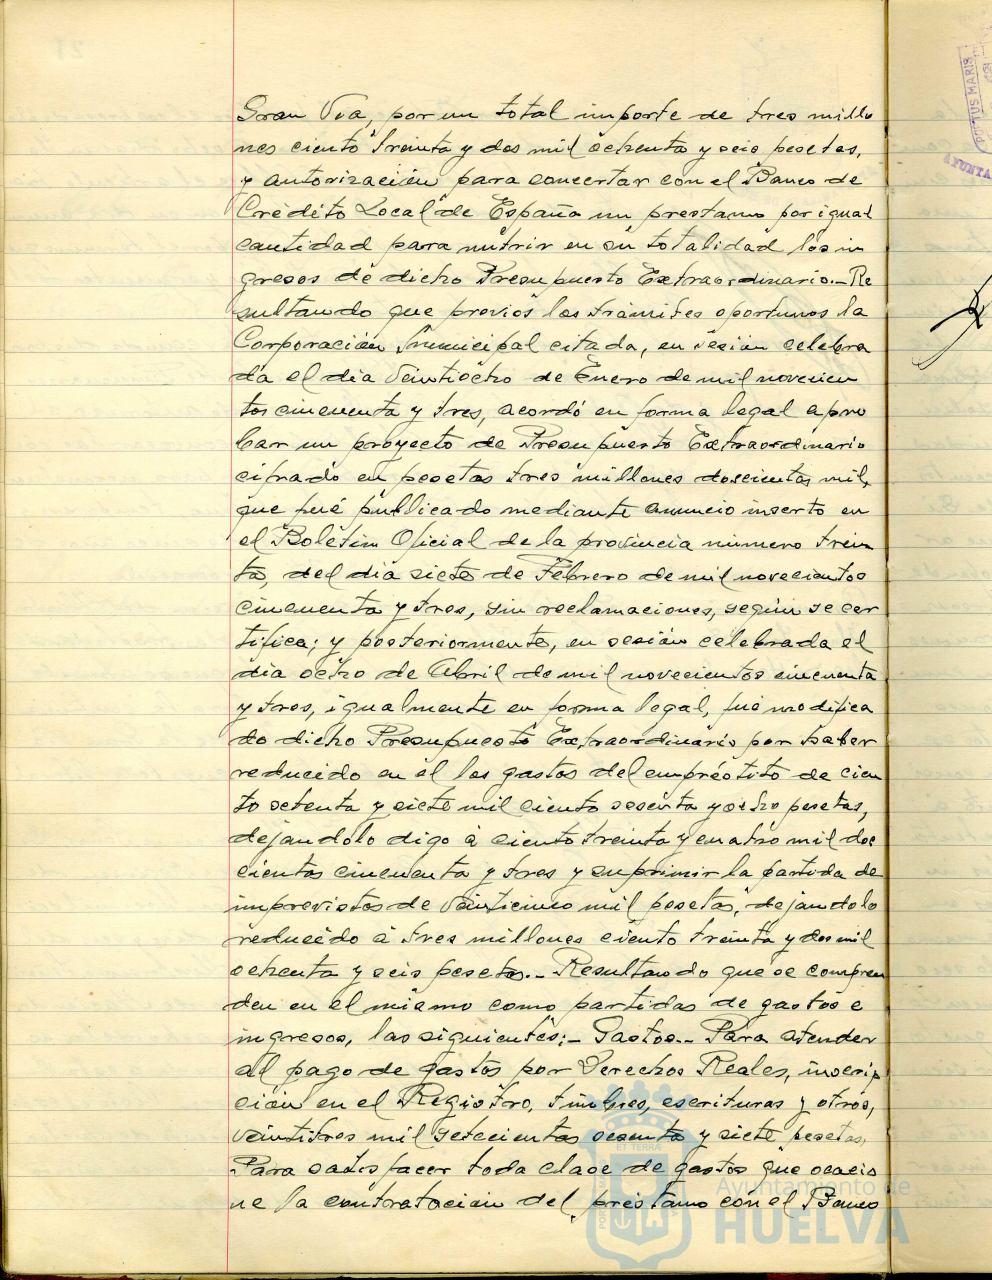 Gran Via, por un total importe de tres millo
nes ciento treinta y dos mil ochenta y seis pesetas,
y autorización para concertar con el Banco de
Crédito Local de España un prestamo por igual
cantidad para nutrir en su totalidad los in
gresos de dicho Presupuesto Extraordinario.- Re
sultando que previos los trámites oportunos la
Corporación Municipal citada, en sesión celebra
da el dia veintiocho de Enero de mil novecien
tos cincuenta y tres, acordó en forma legal apro
bar un proyecto de Presupuesto Extraordinario
cifrado en pesetas tres millones doscientas mil,
que fué publicado mediante anuncio inserto en
el Boletin Oficial de la provincia número trein
ta, del dia siete de Febrero de mil novecientos
cincuenta y tres, sin reclamaciones, según se cer
tifica; y posteriormente, en sesión celebrada el
dia ocho de Abril de mil novecientos cincuenta
y tres, igualmente en forma legal, fué modifica
do dicho Presupuesto Extraordinario por haber
reducido en él los gastos del empréstito de cien
to setenta y siete mil ciento sesenta y ocho pesetas,
dejandolo digo á ciento treinta y cuatro mil dos
cientas cincuenta y tres y suprimir la partida de
imprevistos de veinticinco mil pesetas, dejandolo
reducido á tres millones ciento treinta y dos mil
ochenta y seis pesetas.- Resultando que se compren
den en el mismo como partidas de gastos e
ingresos, las siguientes:- Gastos.- Para atender
al pago de gastos por Derechos Reales, inscrip
ción en el Registro, timbres, escrituras y otros,
veintitres mil setecientas sesenta y siete pesetas.
Para satisfacer toda clase de gastos que ocasio
ne la contratacion del prestamo con el Banco
PORTUS MARIS
ET TERRÆ
Ayuntamiento de
HUELVA